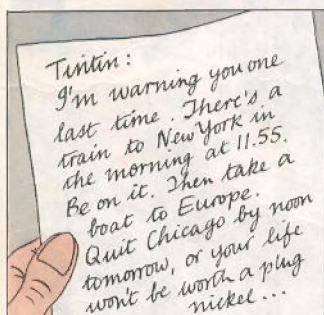 Tintin :
I'm warning you one
last time. There's a
train to New York in
the morning at 11.55.
Be on it. Then take a
boat to Europe.
Quit Chicago by noon
tomorrow, or your life
won't be worth a plug
nickel...